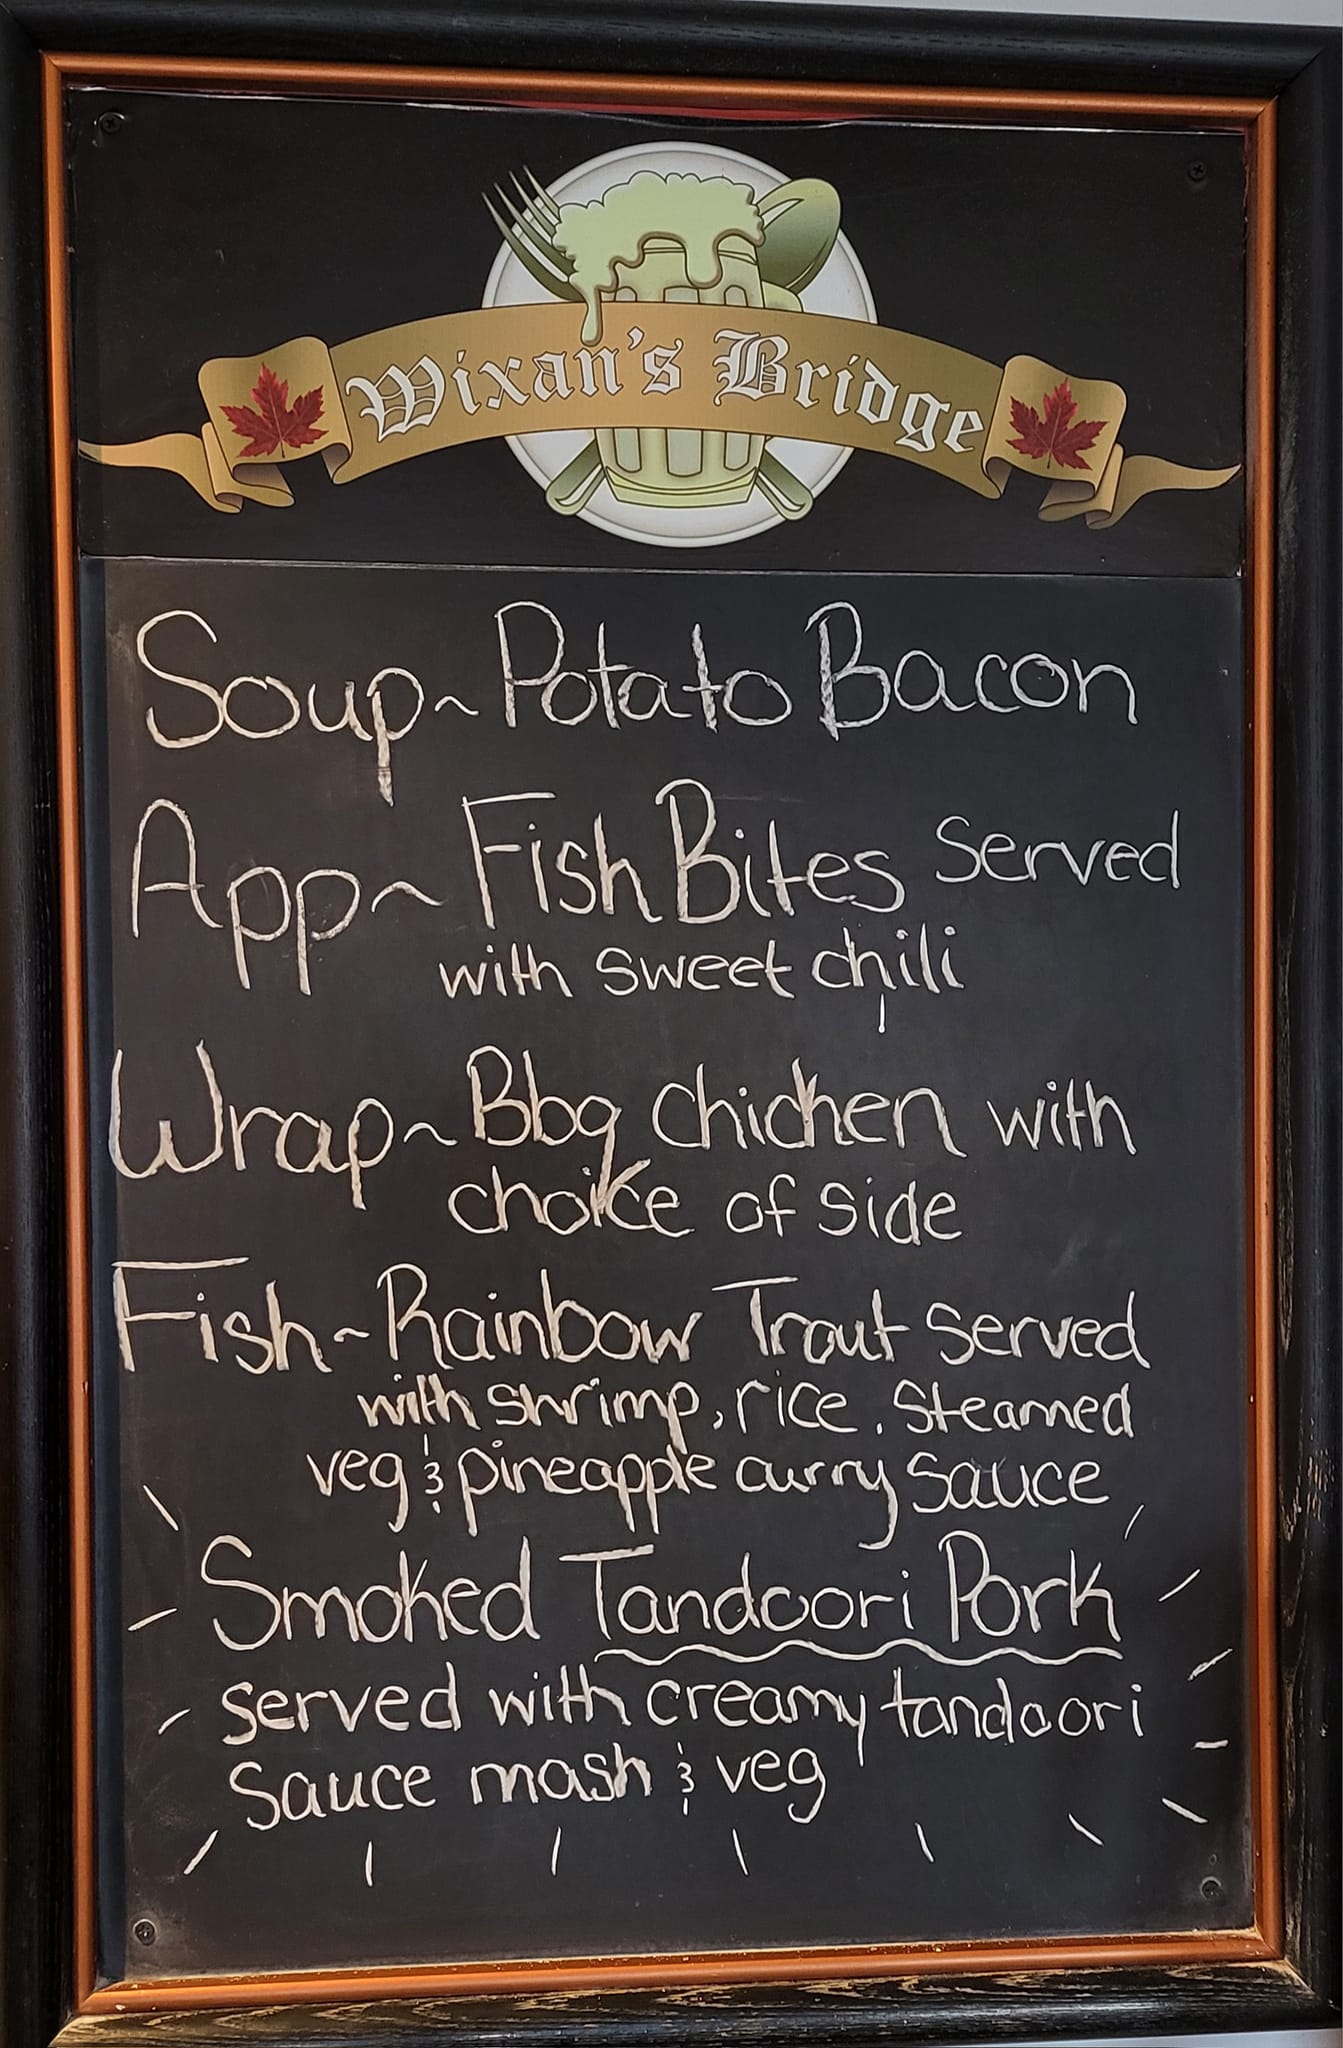 Wixan's Bridge
Soup~Potato Bacon
App~Fish Bites served
with sweet chili
Wrap~Bbq chicken with
choice of side
Fish~Rainbow Trout served
with shrimp, rice, steamed
veg & pineapple curry sauce
Smoked Tandoori Pork
served with creamy tandoori
sauce mash & veg